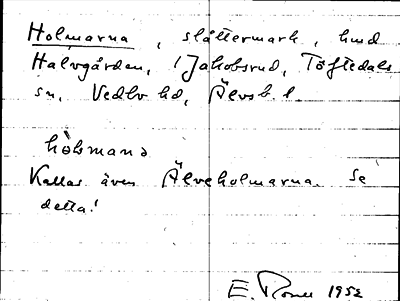 Holmarna, slåttermark, hmd
Halvgården, 1 Jakobsrud, Töftedals
sn, Vedbo hd, Älvsb. l.
hòlmana
Kallas även Älveholmarna. Se
detta!
E. 1952